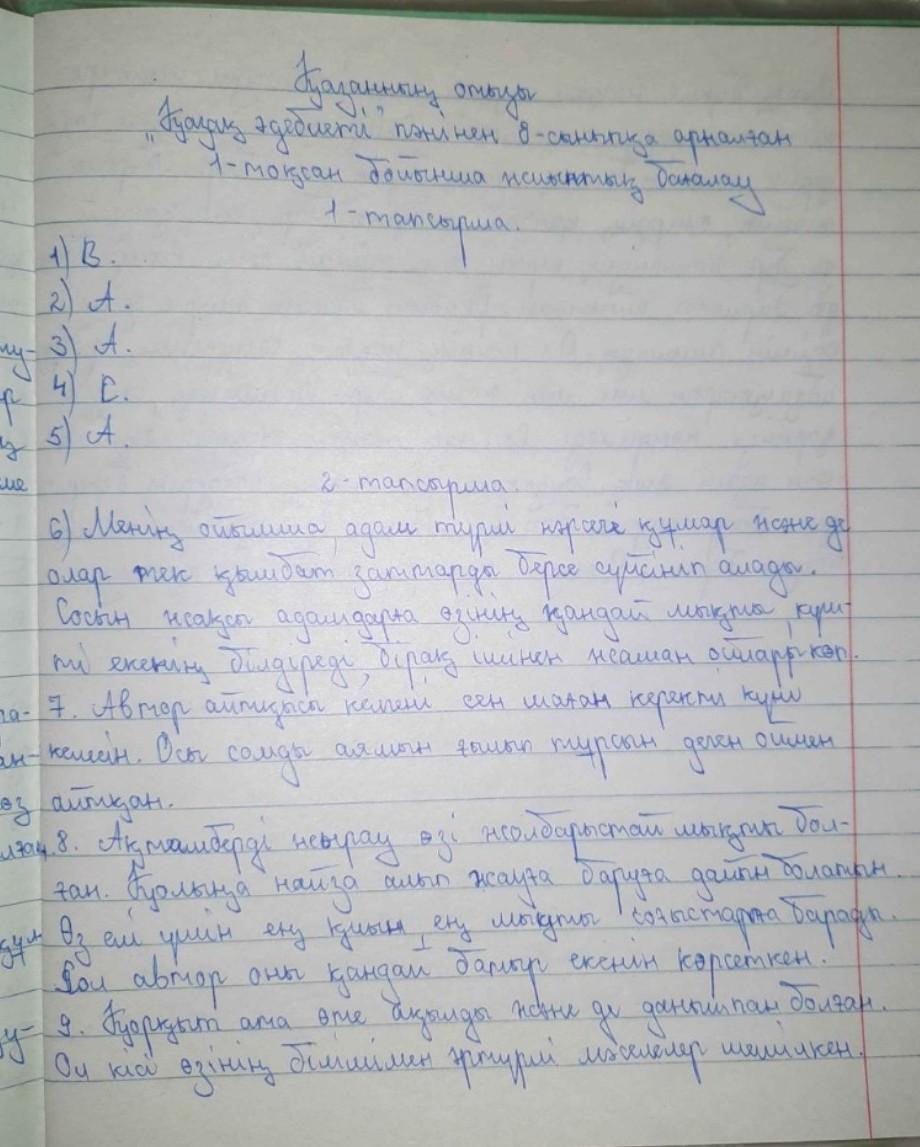 Қазанның отызы
"Қазақ әдебиеті" пәнінен 8-сыныпқа арналған
1-тоқсан бойынша жиынтық бағалау
1-тапсырма.
1) В.
2) А.
лу- 3) А.
р 4) С.
з 5) А.
ме 2-тапсырма.
6) Менің ойымша, адам түрлі нәрсеге құмар және де
олар тек қымбат заттарды берсе сүйсініп алады.
Сосын жақсы адамдарға өзінің қандай мықты, күш-
ті екенің білдіреді, бірақ ішінен жаман ойлары көп.
ға- 7. Автор айтқысы келгені сен маған керекті күні
ан- келмейін. Осы сомды аялмын ғылып тұрсын деген оймен
өз айтқан.
лған. 8. Ақтамберді жырау өзі жолбарыстай мықты бол-
ған. Қолыңа найза алып жауға баруға дайын болатын.
құл Өз елі үшін ең қиын, ең мықты соғыстарға барады.
Сол автор оны қандай батыр екенін көрсеткен.
у- 9. Қорқыт ата өте ақылды және де данышпан болған.
Ол кісі өзінің білімімен әртүрлі мәселелер шешілкен.